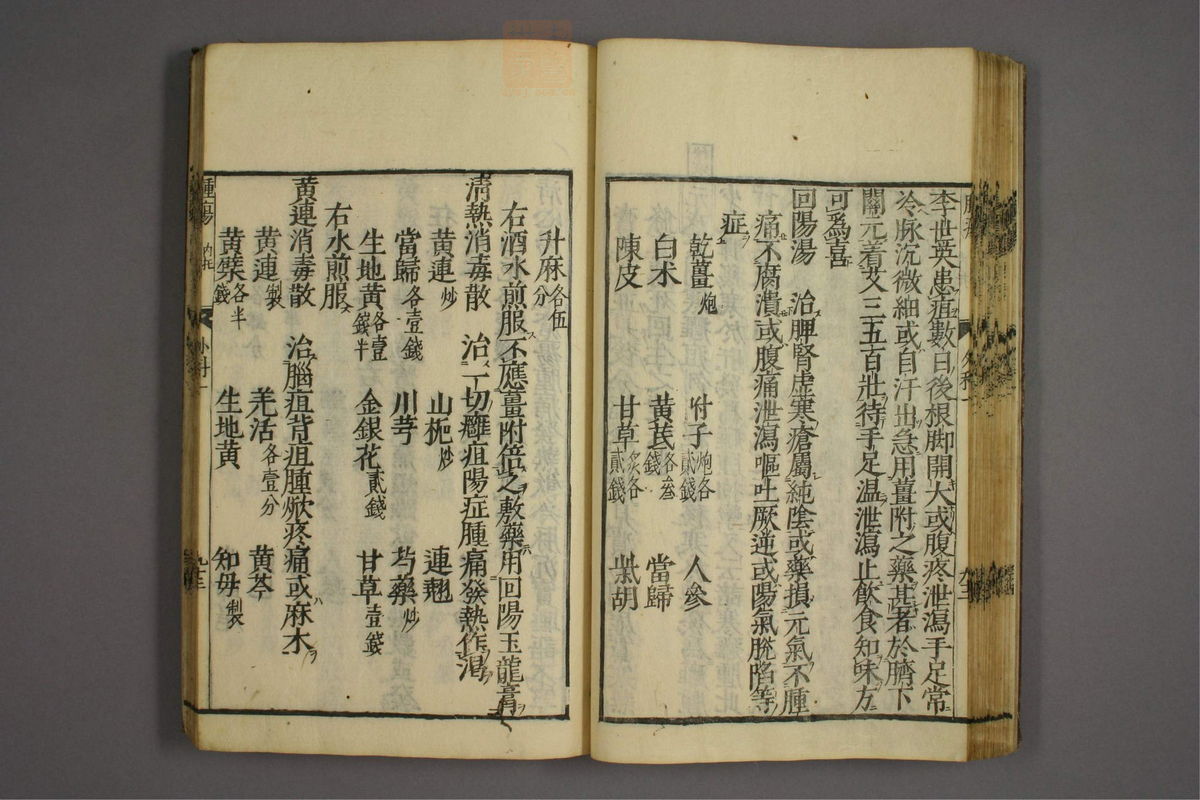 李世英患疽數日後根脚開大或腹疼泄瀉手足常
冷脉沉微細或自汗出急用薑附之藥甚者於臍下
關元着艾三五百壯待手足温泄瀉止飲食知味方
可爲喜
回陽湯 治脾腎虚寒瘡屬純陰或藥損元氣不腫
痛不腐潰或腹痛泄瀉嘔吐厥逆或陽氣脫陷等
症
乾薑炮 附子炮各貳錢 人參
白术 黄芪各叁錢 當歸
陳皮 甘草炙各貳錢 柴胡
升麻各伍分
右酒水煎服不應薑附倍之敷藥用回陽玉龍膏
清熱消毒散 治一切癰疽陽症腫痛發熱作渴
黄連炒 山梔炒 連翹
當歸各壹錢 川芎 芍藥炒
生地黄各壹錢半 金銀花貳錢 甘草壹錢
右水煎服
黄連消毒散 治腦疽背疽腫焮疼痛或麻木
黄連製 羌活各壹分 黄芩
黄蘗各半錢 生地黄 知毋製
腫瘍
九十三